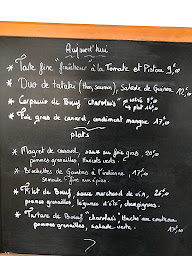 Aujourd'hui
* Tarte fine fraîcheur à la Tomate et Pistou 9,00
* Duo de tataki (thon, saumon), Salade de Quinoa 12,00
* Carpaccio de Bœuf "charolais"
* Foie gras de canard, condiment mangue 17,00
plats
* Magret de canard, sauce au foie gras, 20,00
pommes grenailles, haricots verts.
* Brochettes de Gambas à l'indienne 17,00
semoule fine aux épices.
* Filet de Bœuf, sauce marchand de vin, 26,00
pommes grenailles, légumes d'été, champignons.
* Tartare de Bœuf "charolais" Haché au couteau
pommes grenailles, salade verte. 17,00